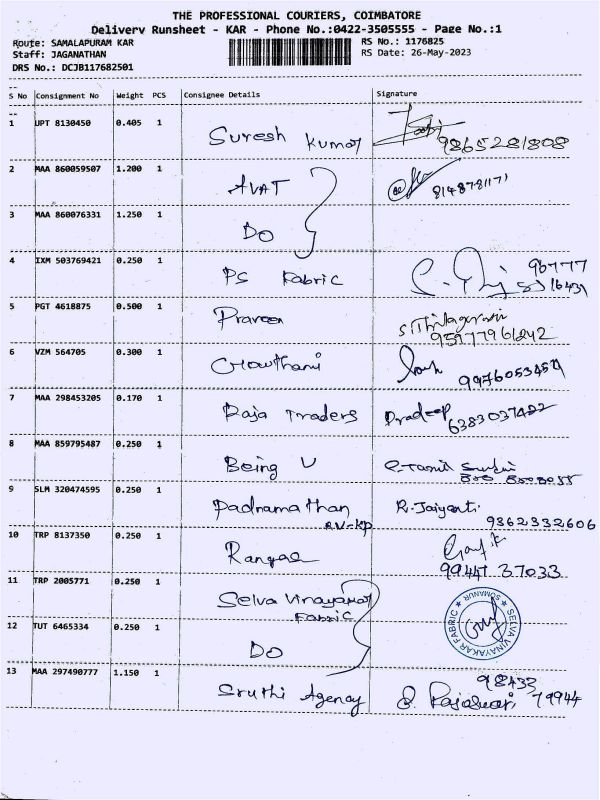 THE PROFESSIONAL COURIERS, COIMBATORE
Delivery Runsheet - KAR - Phone No.:0422-3505555 - Page No.:1
Route: SAMALAPURAM KAR RS No.: 1176825
Staff: JAGANATHAN RS Date: 26-May-2023
DRS No.: DCJB117682501
S No Consignment No Weight PCS Consignee Details Signature
1 UPT 8130450 0.405 1 Suresh Kumar 9865281808
2 MAA 860059507 1.200 1 AVAT 8148781171
3 MAA 860076331 1.250 1 DO
4 IXM 503769421 0.250 1 PS Fabric 96777
5 PGT 4618875 0.500 1 Praveen S.Thilagavathi
9597796242
6 VZM 564705 0.300 1 Gowthami
7 MAA 298453205 0.170 1 Raja Traders Pradeep
6383037422
8 MAA 859795487 0.250 1 Being U
9 SLM 320474595 0.250 1 Padnamathan R.Jaiyanti
RV-KP 9362332606
10 TRP 8137350 0.250 1 Rangas
99447 37033
11 TRP 2005771 0.250 1 Selva Vinayakar
Fabric
SELVA VINAYAKAR FABRIC SOMANUR
12 TUT 6465334 0.250 1 DO
13 MAA 297490777 1.150 1 Sruthi Agency 98433
79944